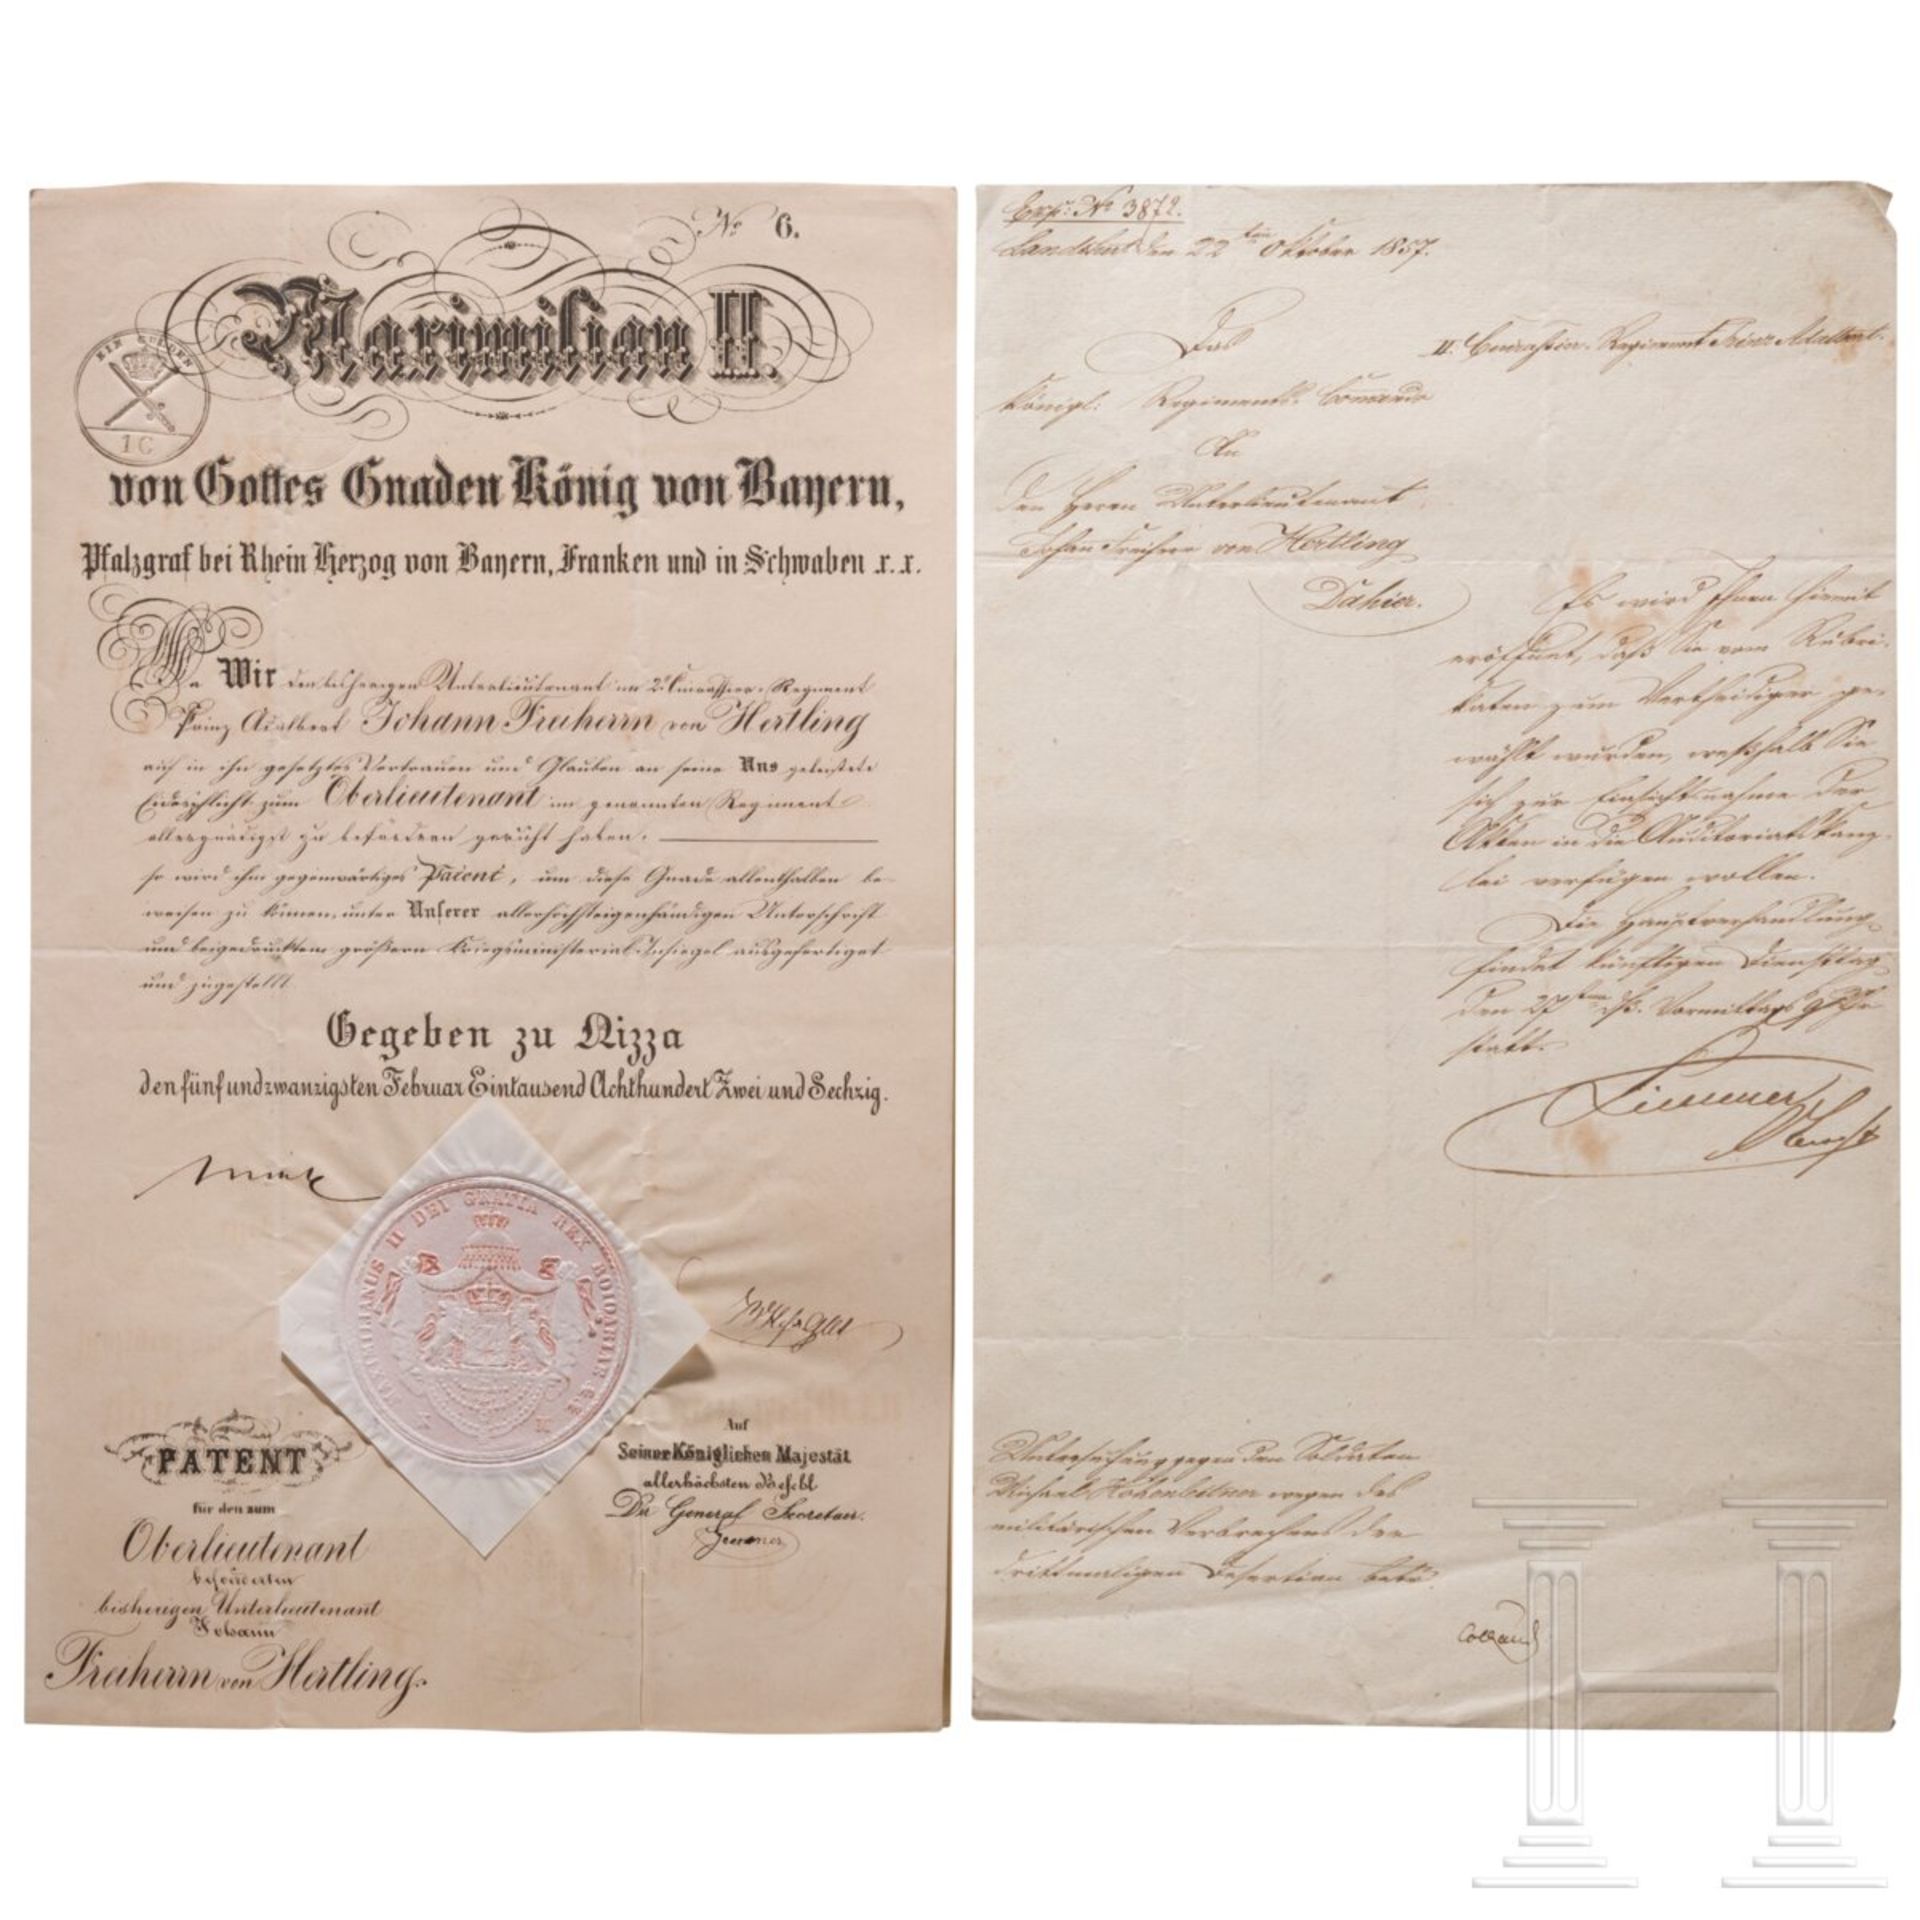 No 6.
Maximilian II.
EIN GULDEN
1 G
von Gottes Gnaden König von Bayern,
Pfalzgraf bei Rhein Herzog von Bayern, Franken und in Schwaben x. x.
Da Wir den bisherigen Unterlieutenant im 2. Cuirassier-Regiment
Prinz Adalbert Johann Freiherrn von Hertling
auf in ihn gesetztes Vertrauen und Glauben an seine Uns geleistete
Eidespflicht zum Oberlieutenant im genannten Regiment
allergnädigst zu befördern geruht haben,
so wird ihm gegenwärtiges Patent, um diese Gnade allenthalben be-
weisen zu können, unter Unserer allerhöchsteigenhändigen Unterschrift
und beigedrucktem größern Kriegsministerial-Insiegel ausgefertiget
und zugestellt.
Gegeben zu Nizza
den fünfundzwanzigsten Februar Eintausend Achthundert Zwei und Sechzig.
Max
MAXIMILIANUS II DEI GRATIA REX BOIOARIAE
PATENT
für den zum
Oberlieutenant
beförderten
bisherigen Unterlieutenant
Johann
Freiherrn von Hertling.
Auf
Seiner Königlichen Majestät
allerhöchsten Befehl
Der General Secretair.
Exp: No 3872.
Landshut den 22ten Oktober 1857.
Das
II. Cuirassier-Regiment Prinz Adalbert.
Königl: Regiments-Comando
An
den Herrn Unterlieutenant
Johann Freiherr von Hertling
Dahier.
Es wird Ihnen hiemit
eröffnet, daß Sie vom Rubri-
katen zum Vertheidiger ge-
wählt wurden, weßhalb Sie
sich zur Einsichtsnahme der
Akten in die Auditoriatskanz-
lei verfügen wollen.
Die Hauptverhandlung
findet künftigen Dienstag
den 27ten dß. Vormittags 9 Uhr
statt.
Untersuchung gegen den Soldaten
Michael Hohenleitner wegen des
militärischen Verbrechens der
drittmaligen Desertion betr.